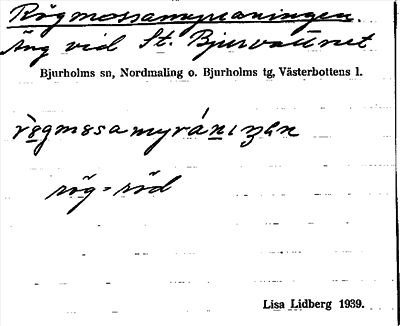 Rögmossamyraningen.
Äng vid St. Bjurvattnet
Bjurholms sn, Nordmaling o. Bjurholms tg, Västerbottens l.
rögmosamyránıŋen
rög = röd
Lisa Lidberg 1939.